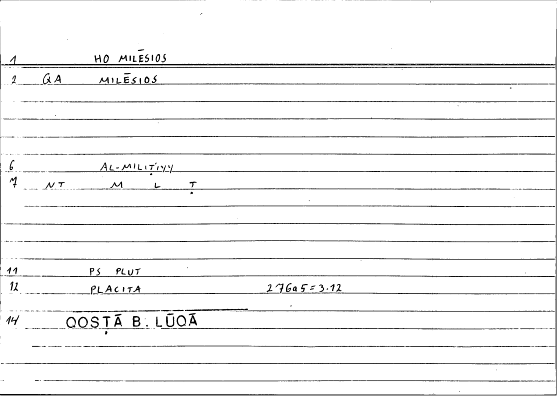 1 HO MILĒSIOS
2 GA MILĒSIOS
6 AL-MILIṬIYY
7 NT M L Ṭ
11 PS PLUT
12 PLACITA 276a5=3.12
14 QOSṬĀ B. LŪQĀ